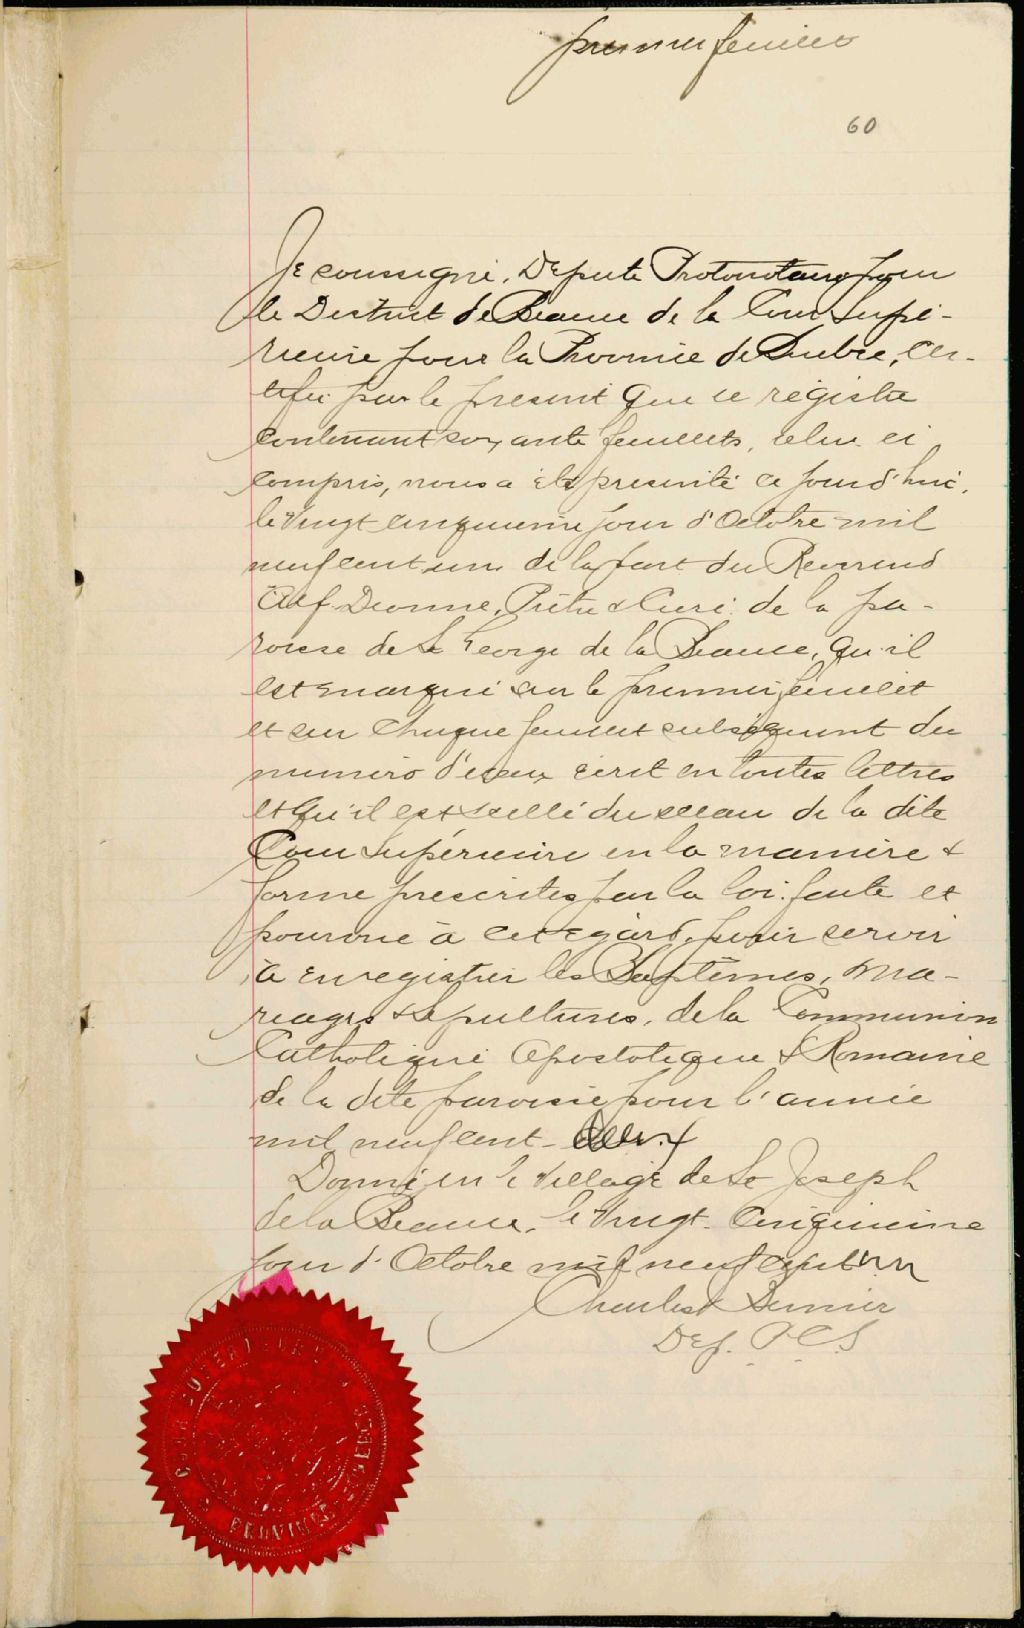 premier feuillet
60
Je soussigné, Député Protonotaire pour
le District de Beauce de la Cour Supé-
rieure pour la Province de Québec, cer-
tifie par le présent que ce régistre
contenant soixante feuillets, celui ci
compris, nous a été présenté ce jourd'hui,
le vingt cinquième jour d'Octobre mil
neuf cent un de la part du Révérend
Alf. Dionne, Prêtre & Curé de la pa-
roisse de St George de la Beauce, qu'il
est marqué sur le premier feuillet
et sur chaque feuillet subséquent du
numéro d'iceux écrit en toutes lettres
et qu'il est scellé du sceau de la dite
Cour Supérieure en la manière &
forme prescrites par la loi faite et
pourvue à cet égard, pour servir
à enregistrer les Baptêmes, Ma-
riages & Sépultures, de la Communion
Catholique Apostolique & Romaine
de la dite paroisse pour l'année
mil neuf cent deux
Donné en le Village de St Joseph
de la Beauce, le vingt-cinquième
jour d'Octobre mil neuf cent un
Bernier
Dép. P.C.S
COUR SUPERIEURE
PROVINCE QUEBEC